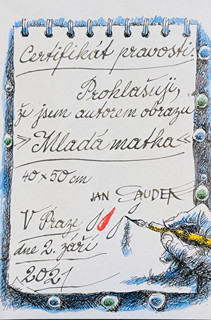 Certifikát pravosti:
Prohlašuji,
že jsem autorem obrazu
»Mladá matka«
40×50cm
JAN SAUDEK
V Praze
dne 2. září
2021